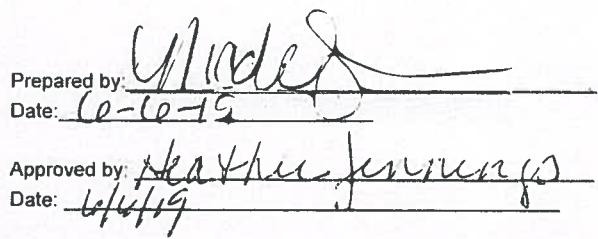 Prepared by:
Date: 6-6-19
Approved by: Heather Jennings
Date: 6/6/19